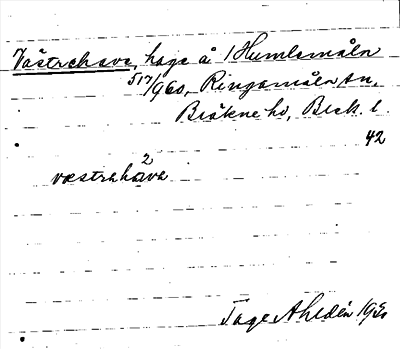 Västrehave, hage å 1 Humlamåln
517/960, Ringamåln sn,
Bräkne hd, Blek. l.
42
væstraha²va
Tage Ahldén 1930